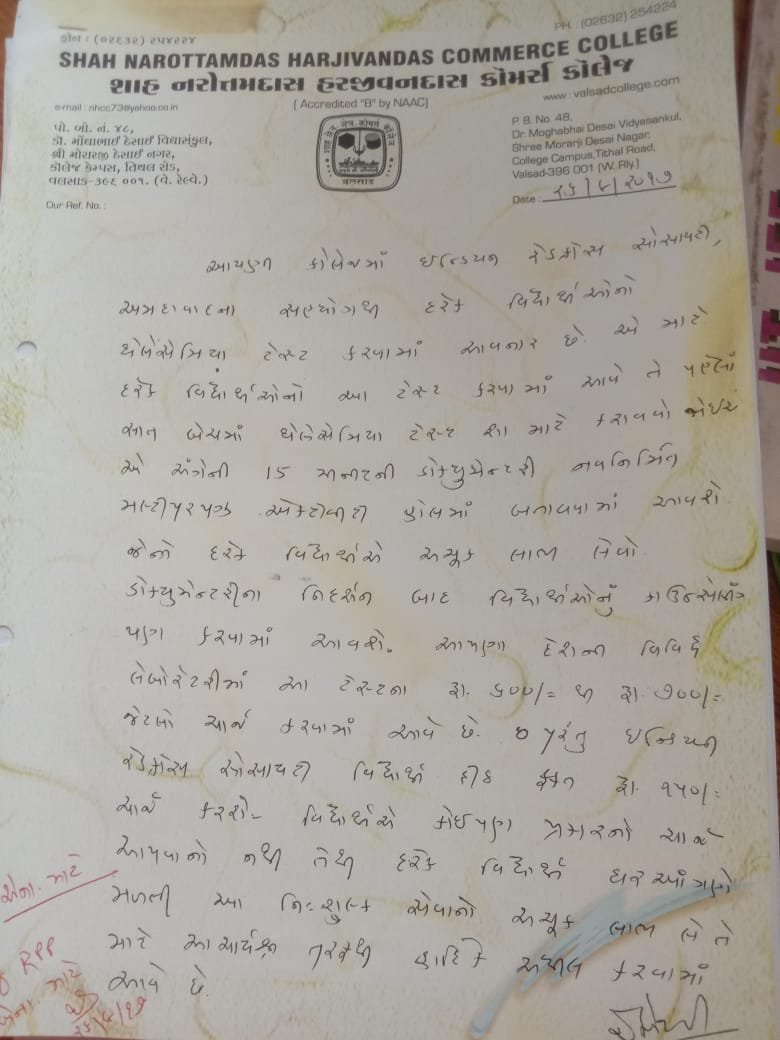 ફોન : (૦૨૬૩૨) ૨૫૪૨૨૪
PH. : (02632) 254224
SHAH NAROTTAMDAS HARJIVANDAS COMMERCE COLLEGE
શાહ નરોતમદાસ હરજીવનદાસ કોમર્સ કોલેજ
e-mail : nhcc73@yahoo.co.in
( Accredited "B" by NAAC)
www : valsadcollege.com
પી. બી. નં. ૪૮,
ડૉ. મોંઘાભાઈ દેસાઈ વિદ્યાસંકુલ,
શ્રી મોરારજી દેસાઈ નગર,
કોલેજ કેમ્પસ, તિથલ રોડ,
વલસાડ-૩૯૬ ૦૦૧. (વે. રેલ્વે.)
વલસાડ
P. B. No. 48,
Dr. Moghabhai Desai Vidyasankul,
Shree Morarji Desai Nagar,
College Campus,Tithal Road,
Valsad-396 001 (W. Rly.)
Our Ref. No. :
Date : ૨૬/૮/૨૦૧૭
આપણી કોલેજમાં ઇન્ડિયન રેડક્રોસ સોસાયટી,
અમદાવાદના સહયોગથી દરેક વિદ્યાર્થીઓનો
થેલેસેમિયા ટેસ્ટ કરવામાં આવનાર છે. એ માટે
દરેક વિદ્યાર્થીઓનો આ ટેસ્ટ કરવામાં આવે તે પહેલાં
સાત બેચમાં થેલેસેમિયા ટેસ્ટ શા માટે કરાવવો જોઈએ
એ અંગેની 15 મીનીટની ડોક્યુમેન્ટરી નવનિર્મિત
મલ્ટીપરપઝ એક્ટીવીટી હોલમાં બતાવવામાં આવશે
જેનો દરેક વિદ્યાર્થીએ અચૂક લાભ લેવો.
ડોક્યુમેન્ટરીના નિદર્શન બાદ વિદ્યાર્થીઓનું કાઉન્સેલીંગ
પણ કરવામાં આવશે. આપણા દેશની વિવિધ
લેબોરેટરીમાં આ ટેસ્ટના રૂા. ૬૦૦/= થી રૂા. ૭૦૦/=
જેટલો ચાર્જ કરવામાં આવે છે. પરંતુ ઇન્ડિયન
રેડક્રોસ સોસાયટી વિદ્યાર્થી દીઠ ફક્ત રૂા. ૧૫૦/=
ચાર્જ કરશે- વિદ્યાર્થીએ કોઈપણ પ્રકારનો ચાર્જ
આપવાનો નથી તેથી દરેક વિદ્યાર્થી ઘર આંગણે
મળતી આ નિઃશુલ્ક સેવાનો અચૂક લાભ લે તે
માટે આચાર્યશ્રી તરફથી હાર્દિક અપીલ કરવામાં
આવે છે.
માટે
RPP
માટે